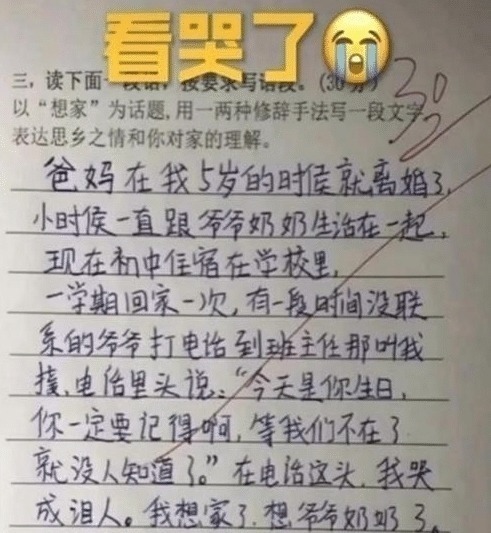 看哭了
三,读下面一段话,按要求写语段。(30分)
30
以“想家”为话题,用一两种修辞手法写一段文字
表达思乡之情和你对家的理解。
爸妈在我5岁的时侯就离婚了,
小时侯一直跟爷爷奶奶生活在一起,
现在初中住宿在学校里,
一学期回家一次,有一段时间没联
系的爷爷打电话到班主任那叫我
接,电话里头说:“今天是你生日,
你一定要记得啊,等我们不在了
就没人知道了。”在电话这头,我哭
成泪人。我想家了,想爷爷奶奶了。